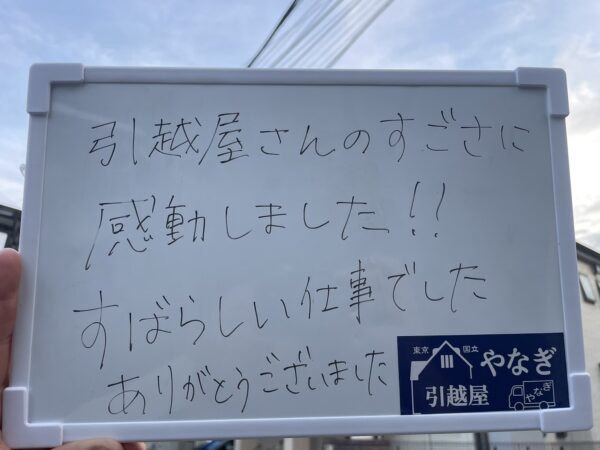 引越屋さんのすごさに
感動しました!!
すばらしい仕事でした
ありがとうございました
東京 国立
やなぎ
引越屋
やなぎ